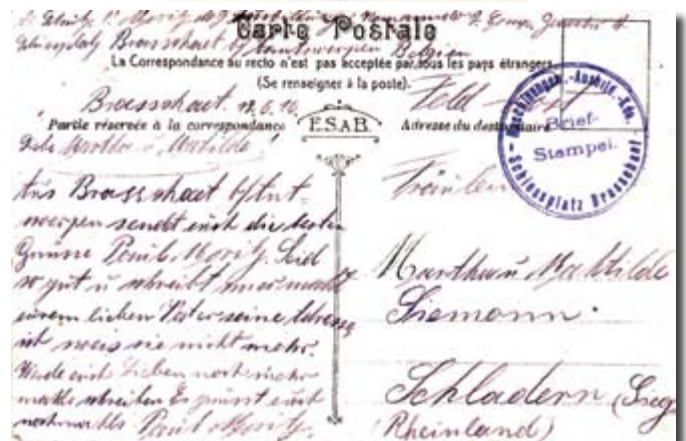 Carte Postale
Schiessplatz Brasschaet b/Antwerpen Belgien
La Correspondance au recto n'est pas acceptée par tous les pays étrangers
(Se renseigner à la poste).
Brasschaet. 18.6.16 Feld
Partie réservée à la correspondance E.S.A.B. Adresse du destinataire
Brief-
Stempel.
Schiessplatz Brasschaet
Martha u. Mathilde
Aus Brasschaet b/Ant-
werpen sendet euch die besten
Grüsse Paul Moritz. Seid
so gut u schreibt mir mahl
eurem lieben Vater seine Adresse
ich weis sie nicht mehr.
Werde euch Lieben noch mehr
mahls schreiben Es grüsst euch
nochmahls Paul Moritz.
Fräulein
Martha u. Mathilde
Siemann.
Schladern (Sieg
Rheinland)